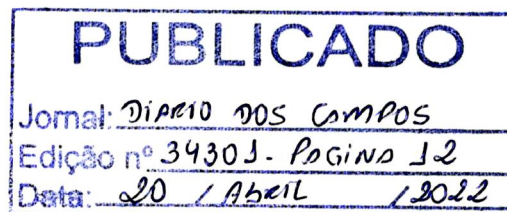 PUBLICADO
Jornal: DIARIO DOS CAMPOS
Edição nº 34301 - PAGINA 12
Data: 20 / ABRIL / 2022